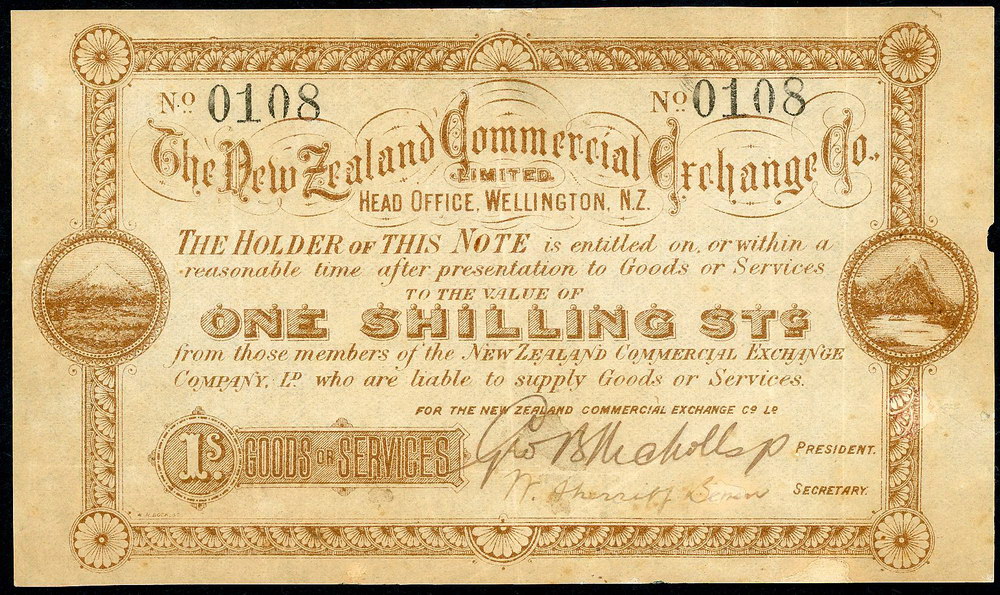 No 0108 No 0108
The New Zealand Commercial Exchange Co.,
LIMITED.
HEAD OFFICE, WELLINGTON, N.Z.
THE HOLDER OF THIS NOTE is entitled on, or within a
reasonable time after presentation to Goods or Services
TO THE VALUE OF
ONE SHILLING STG
from those members of the NEW ZEALAND COMMERCIAL EXCHANGE
COMPANY, LD who are liable to supply Goods or Services.
FOR THE NEW ZEALAND COMMERCIAL EXCHANGE CO LD
1s. GOODS OR SERVICES
Geo B Nicholls PRESIDENT.
W. Sherriff SECRETARY.